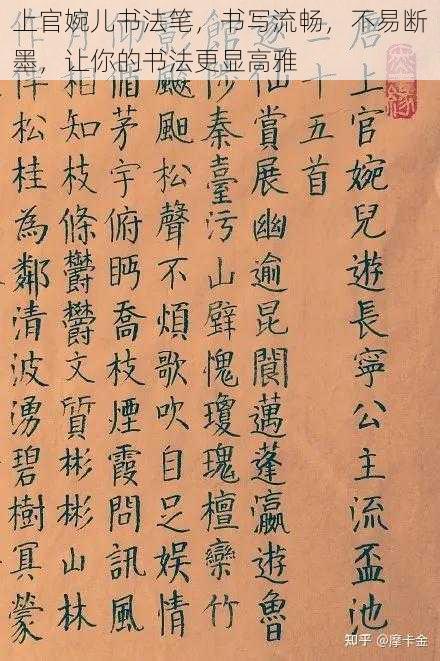 上官婉儿书法笔，书写流畅，不易断
墨，让你的书法更显高雅
唐上官婉兒遊長寧公主流盃池
二十五首
遊仙賞展幽逾昆閬邁蓬瀛遊魯
館陟秦臺污山壁愧瓊瑰檀欒竹
影飈松聲不煩歌吹自足娛情
仰循茅宇俯眄喬枝煙霞問訊風
月相知枝條鬱鬱文質彬彬山林
伴松桂為鄰清波湧碧樹冥蒙
緣
知乎 @摩卡金